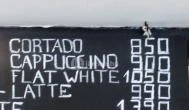 CORTADO 850
CAPPUCCINO 900
FLAT WHITE 1050
LATTE 990